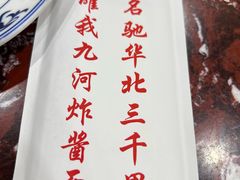 名驰华北三千里
唯我九河炸酱面